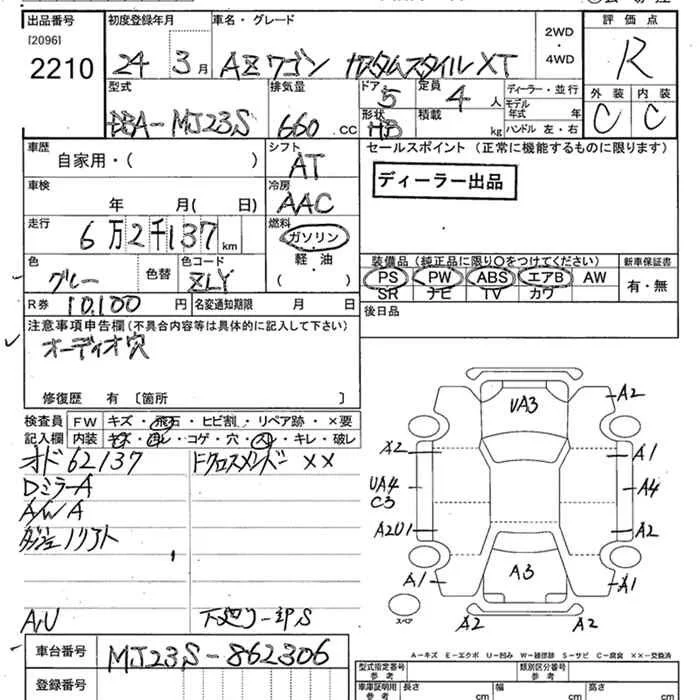 出品番号 初度登録年月 車名・グレード 2WD・4WD 評価点
[2096]
2210 24 3月 AZワゴン カスタムスタイル XT R
型式 排気量 ドア 5 定員 4人 ディーラー・並行 外装 内装
DBA-MJ23S 660 CC 形状 HB 積載 kg モデル年式 年 C C
ハンドル 左・右
車歴 シフト セールスポイント (正常に機能するものに限ります)
自家用・( ) AT
車検 冷房 ディーラー出品
年 月( 日) AAC
走行 燃料
6万2千137km ガソリン
軽・油
( )
色 色替 色コード 装備品 (純正品に限り○をつけてください) 新車保証書
グレー ZLY PS PW ABS エアB AW 有・無
SR ナビ TV カワ
R券 10,100円 名変通知期限 月 日 後日品
注意事項申告欄 (不具合内容等は具体的に記入して下さい)
オーディオ穴
修復歴 有 〔箇所 〕
検査員記入欄 FW キズ・飛石・ヒビ割・リペア跡・×要
内装 キズ・汚レ・コゲ・穴・スレ・キレ・破レ
オド62137 ドクロスメンバー ××
DミラーA
AWA
A/U 下廻り-部S
UA3 A2
A2 A1
UA4 A4
C3
A2U1 A2
A3
A1 A1
スペア A2 A2
A-キズ E-エクボ U-凹み W-補修跡 S-サビ C-腐食 ××-交換済
車台番号 MJ23S-862306
登録番号
型式指定番号 参考 類別区分番号 参考
車庫証明用 参考 長さ cm 幅 cm 高さ cm